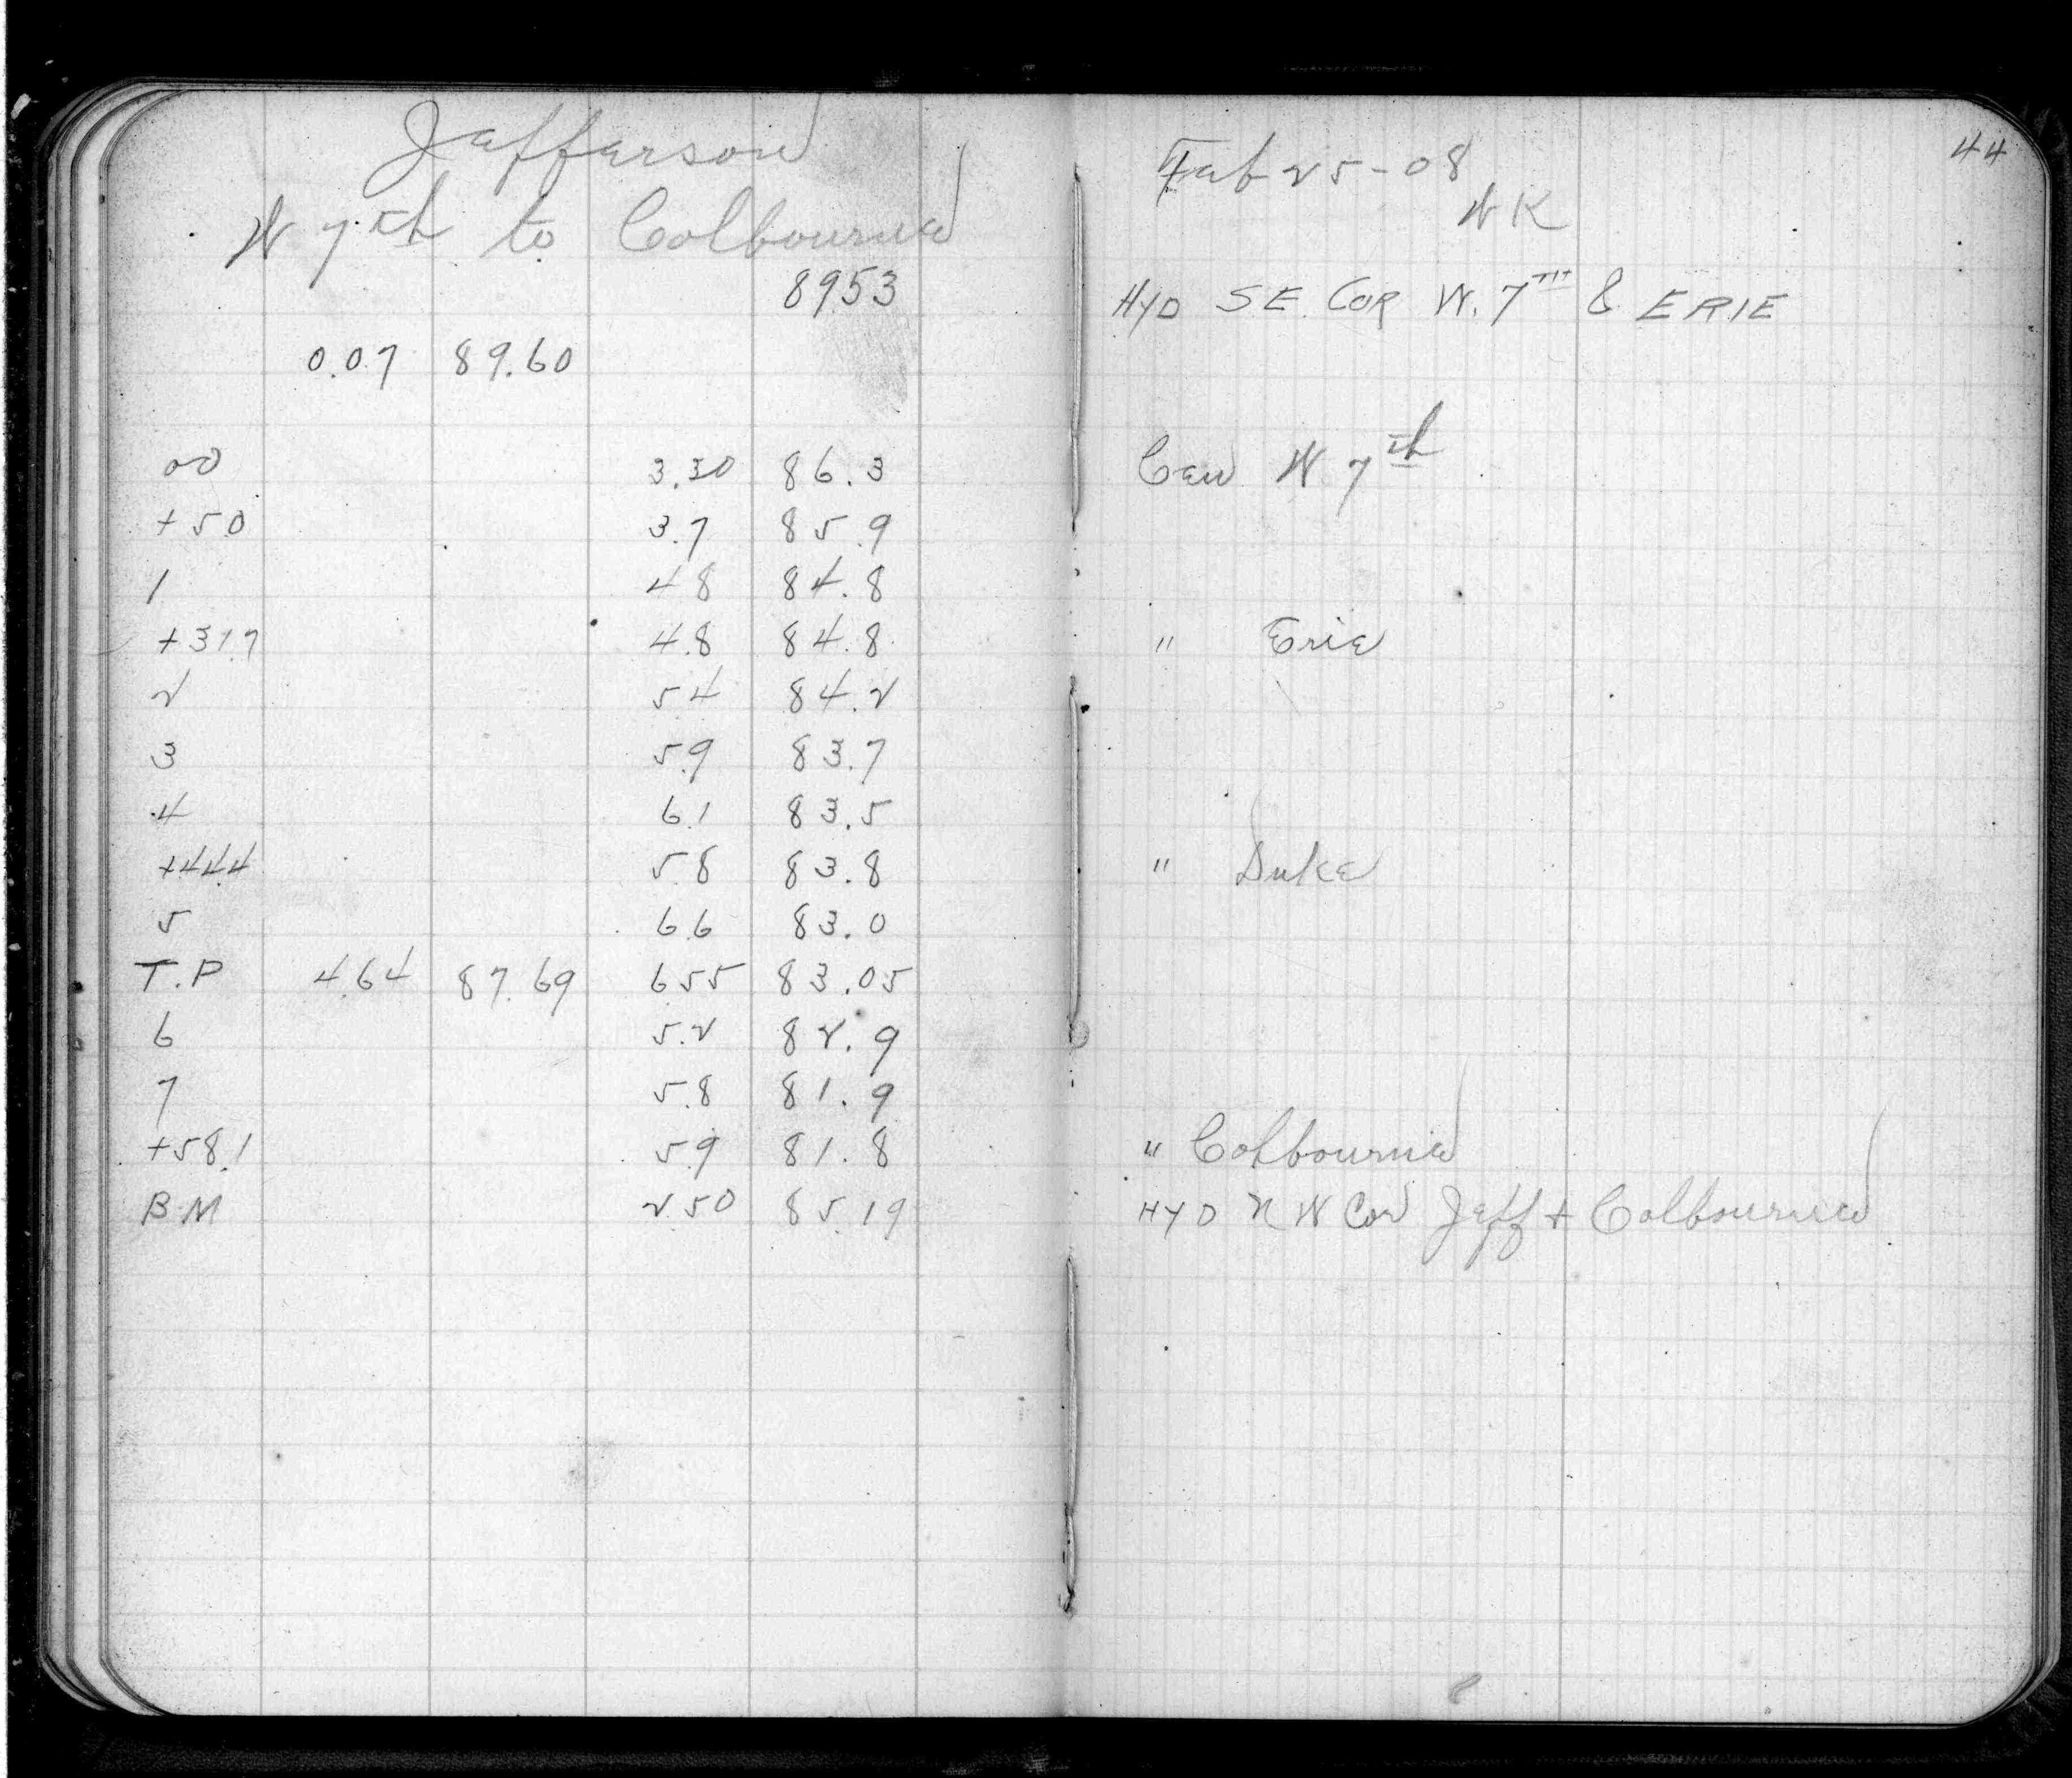 Jefferson
W 7th to Colbourne
8953
0.07 89.60
00 3.30 86.3
+50 3.7 85.9
1 4.8 84.8
+31.7 4.8 84.8
2 5.4 84.2
3 5.9 83.7
4 6.1 83.5
+44.4 5.8 83.8
5 6.6 83.0
T.P 4.64 87.69 6.55 83.05
6 5.2 82.9
7 5.8 81.9
+58.1 5.9 81.8
B.M 2.50 85.19
44
Feb 25-08
WK
HYD SE. COR W. 7TH & ERIE
Cen W 7th
" Erie
" Duke
" Colbourne
HYD N W Cor Jeff + Colbourne